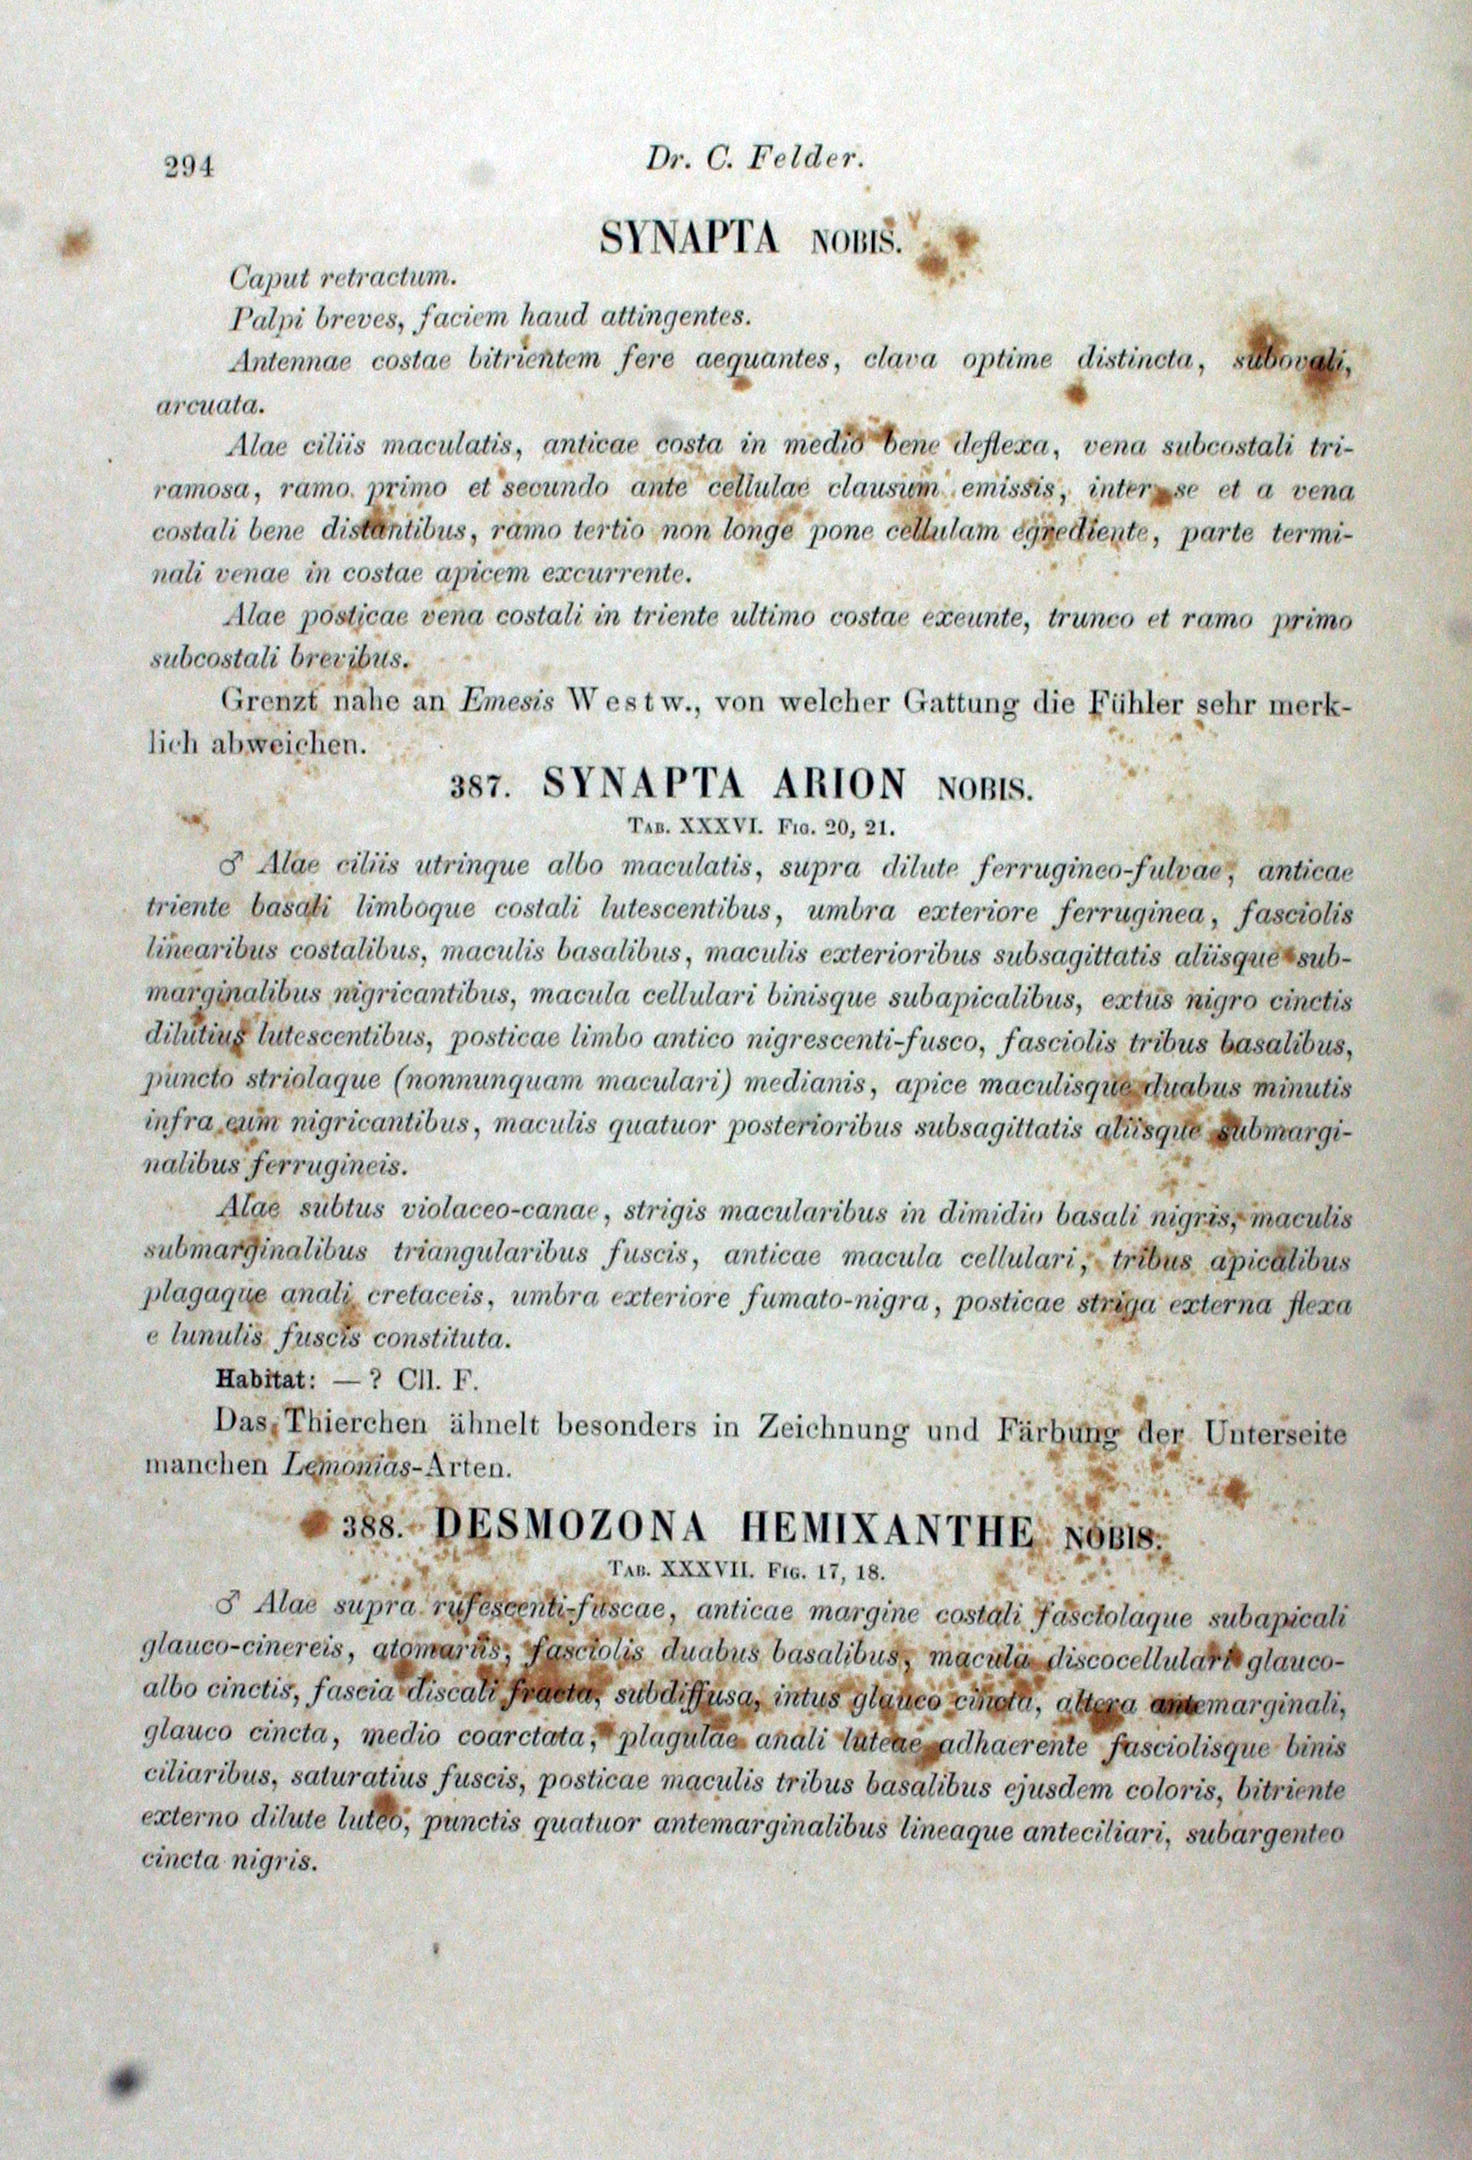 294
Dr. C. Felder.
SYNAPTA NOBIS.
Caput retractum.
Palpi breves, faciem haud attingentes.
Antennae costae bitrientem fere aequantes, clava optime distincta, subovali,
arcuata.
Alae ciliis maculatis, anticae costa in medio bene deflexa, vena subcostali tri-
ramosa, ramo primo et secundo ante cellulae clausum emissis, inter se et a vena
costali bene distantibus, ramo tertio non longe pone cellulam egrediente, parte termi-
nali venae in costae apicem excurrente.
Alae posticae vena costali in triente ultimo costae exeunte, trunco et ramo primo
subcostali brevibus.
Grenzt nahe an Emesis Westw., von welcher Gattung die Fühler sehr merk-
lich abweichen.
387. SYNAPTA ARION NOBIS.
TAB. XXXVI. FIG. 20, 21.
♂ Alae ciliis utrinque albo maculatis, supra dilute ferrugineo-fulvae, anticae
triente basali limboque costali lutescentibus, umbra exteriore ferruginea, fasciolis
linearibus costalibus, maculis basalibus, maculis exterioribus subsagittatis aliisque sub-
marginalibus nigricantibus, macula cellulari binisque subapicalibus, extus nigro cinctis
dilutius lutescentibus, posticae limbo antico nigrescenti-fusco, fasciolis tribus basalibus,
puncto striolaque (nonnunquam maculari) medianis, apice maculisque duabus minutis
infra eum nigricantibus, maculis quatuor posterioribus subsagittatis aliisque submargi-
nalibus ferrugineis.
Alae subtus violaceo-canae, strigis macularibus in dimidio basali nigris, maculis
submarginalibus triangularibus fuscis, anticae macula cellulari, tribus apicalibus
plagaque anali cretaceis, umbra exteriore fumato-nigra, posticae striga externa flexa
e lunulis fuscis constituta.
Habitat: — ? Cll. F.
Das Thierchen ähnelt besonders in Zeichnung und Färbung der Unterseite
manchen Lemonias-Arten.
388. DESMOZONA HEMIXANTHE NOBIS.
TAB. XXXVII. FIG. 17, 18.
♂ Alae supra rufescenti-fuscae, anticae margine costali fasciolaque subapicali
glauco-cinereis, atomariis, fasciolis duabus basalibus, macula discocellulari glauco-
albo cinctis, fascia discali fracta, subdiffusa, intus glauco cincta, altera antemarginali,
glauco cincta, medio coarctata, plagulae anali luteae adhaerente fasciolisque binis
ciliaribus, saturatius fuscis, posticae maculis tribus basalibus ejusdem coloris, bitriente
externo dilute luteo, punctis quatuor antemarginalibus lineaque anteciliari, subargenteo
cincta nigris.